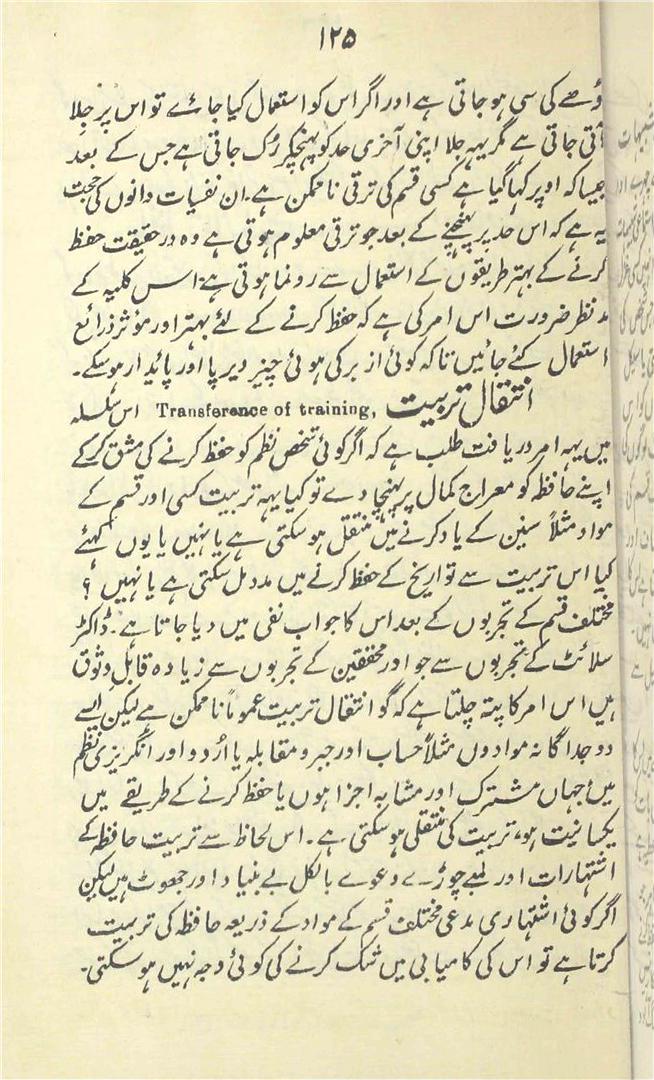 ۱۲۵
دُھے کی سی ہو جاتی ہے اور اگر اس کو استعمال کیا جائے تو اس پر جِلا
آتی جاتی ہے مگر یہہ جلا اپنی آخری حد کو پہنچکر رُک جاتی ہے جس کے بعد
جیسا کہ اوپر کہا گیا ہے کسی قسم کی ترقی ناممکن ہے۔ ان نفسیات دانوں کی حجت
یہ ہے کہ اس حد پر پہنچنے کے بعد جو ترقی معلوم ہوتی ہے وہ در حقیقت حفظ
کرنے کے بہتر طریقوں کے استعمال سے رونما ہوتی ہے۔ اس کلیہ کے
مد نظر ضرورت اس امر کی ہے کہ حفظ کرنے کے لئے بہتر اور مؤثر ذرائع
استعمال کئے جائیں تاکہ کوئی از بر کی ہوئی چیز دیرپا اور پائیدار ہو سکے۔
انتقال تربیت Transference of training, اس سلسلہ
میں یہہ امر دریافت طلب ہے کہ اگر کوئی شخص نظم کو حفظ کرنے کی مشق کر کے
اپنے حافظہ کو معراج کمال پر پہنچا دے تو کیا یہہ تربیت کسی اور قسم کے
مواد مثلاً سنین کے یاد کرنے میں منتقل ہو سکتی ہے یا نہیں یا یوں کہئے
کیا اس تربیت سے تواریخ کے حفظ کرنے میں مدد مل سکتی ہے یا نہیں ؟
مختلف قسم کے تجربوں کے بعد اس کا جواب نفی میں دیا جاتا ہے۔ ڈاکٹر
سلائٹ کے تجربوں سے جو اور محققین کے تجربوں سے زیادہ قابل وثوق
ہیں اس امر کا پتہ چلتا ہے کہ گو انتقال تربیت عموماً ناممکن ہے لیکن ایسے
دو جداگانہ موادوں مثلاً حساب اور جبر و مقابلہ یا اُردو اور انگریزی نظم
میں جہاں مشترک اور مشابہ اجزا ہوں یا حفظ کرنے کے طریقے میں
یکسانیت ہو، تربیت کی منتقلی ہو سکتی ہے۔ اس لحاظ سے تربیت حافظہ کے
اشتہارات اور لمبے چوڑے دعوے بالکل بے بنیاد اور جھوٹ ہیں لیکن
اگر کوئی اشتہاری مدعی مختلف قسم کے مواد کے ذریعہ حافظہ کی تربیت
کرتا ہے تو اس کی کامیابی میں شک کرنے کی کوئی وجہ نہیں ہو سکتی۔